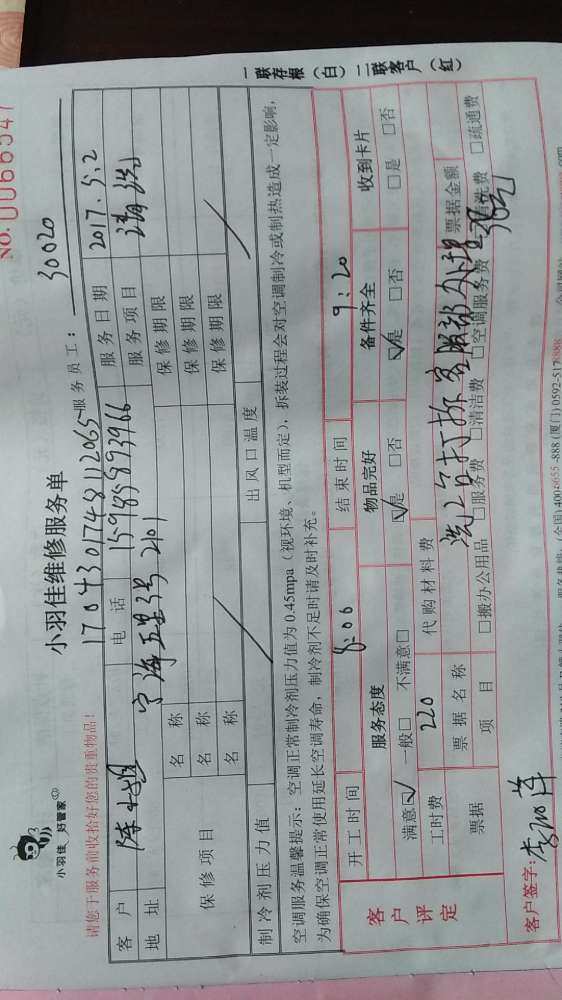 一联存根（白） 二联客户（红）
小羽佳 好管家
小羽佳维修服务单
NO. 0066547
请您于服务前收拾好您的贵重物品！
1704301748112065 服务员工： 30020
客户 陈小姐 电话 15985893966 服务日期 2017.5.2
地址 宁海五里3号2101 服务项目 清洗
保修项目 名称 保修期限
名称 保修期限
名称 保修期限
制冷剂压力值 出风口温度
空调服务温馨提示：空调正常制冷剂压力值为0.45mpa（视环境、机型而定），拆装过程会对空调制冷或制热造成一定影响，
为确保空调正常使用延长空调寿命，制冷剂不足时请及时补充。
客户评定 开工时间 8:06 结束时间 9:20
服务态度 物品完好 备件齐全 收到卡片
满意☑ 一般□ 不满意□ ☑是 □否 ☑是 □否 □是 □否
工时费 220 代购材料费
洗2台打拆客服部处理
票据 票据名称 票据金额
项目 □搬办公用品 □服务费 □清洁费 □空调服务费 □清洗费 □疏通费
客户签字：
(全国)4008655-888 (厦门)0592-517888